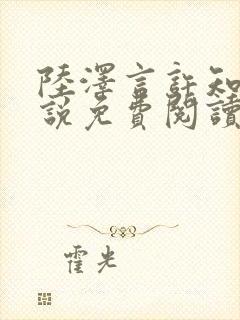 陸澤言許知
說免費閱讀
霍光